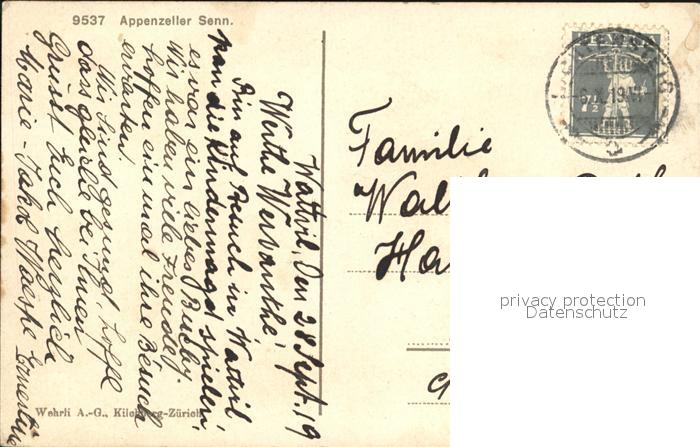 9537 Appenzeller Senn.
Wattwil, Den 28 Sept. 19
Werthe Verwandte!
Bin auf Besuch in Wattwil
kan die Kindermagd spielen,
es war ein liebes Buebj.
Wir haben viele Freude,
hoffen ein mal ihre Besuch
erwarten.
Wir sind gesund, hoffe
das gleiche bei Ihnen
Grüsst Euch herzlich
Marie - Jakob
Wehrli A.-G., Kilchberg-Zürich
7½
Familie
Wal
Ha
privacy protection
Datenschutz